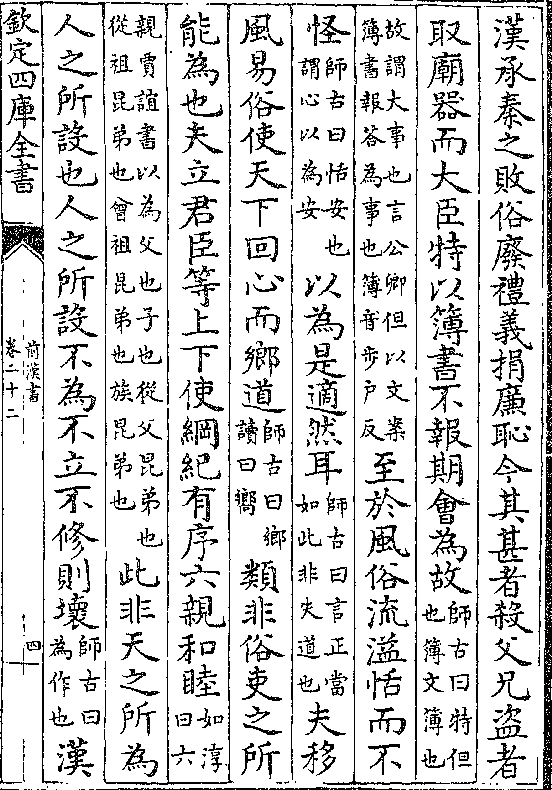 漢承秦之敗俗廢禮義捐廉恥今其甚者殺父兄盜者
取廟器而大臣特以簿書不報期會為故師古曰特但也簿文簿也
故謂大事也言公卿但以文案簿書報答為事也簿音步戶反至於風俗流溢恬而不
怪師古曰恬安也謂心以為安以為是適然耳師古曰言正當如此非失道也夫移
風易俗使天下回心而鄉道師古曰鄉讀曰嚮類非俗吏之所
能為也夫立君臣等上下使綱紀有序六親和睦如淳曰六
親賈誼書以為父也子也從父昆弟也從祖昆弟也曾祖昆弟也族昆弟也此非天之所為
人之所設也人之所設不為不立不修則壞師古曰為作也漢
欽定四庫全書
前漢書
卷二十二
四